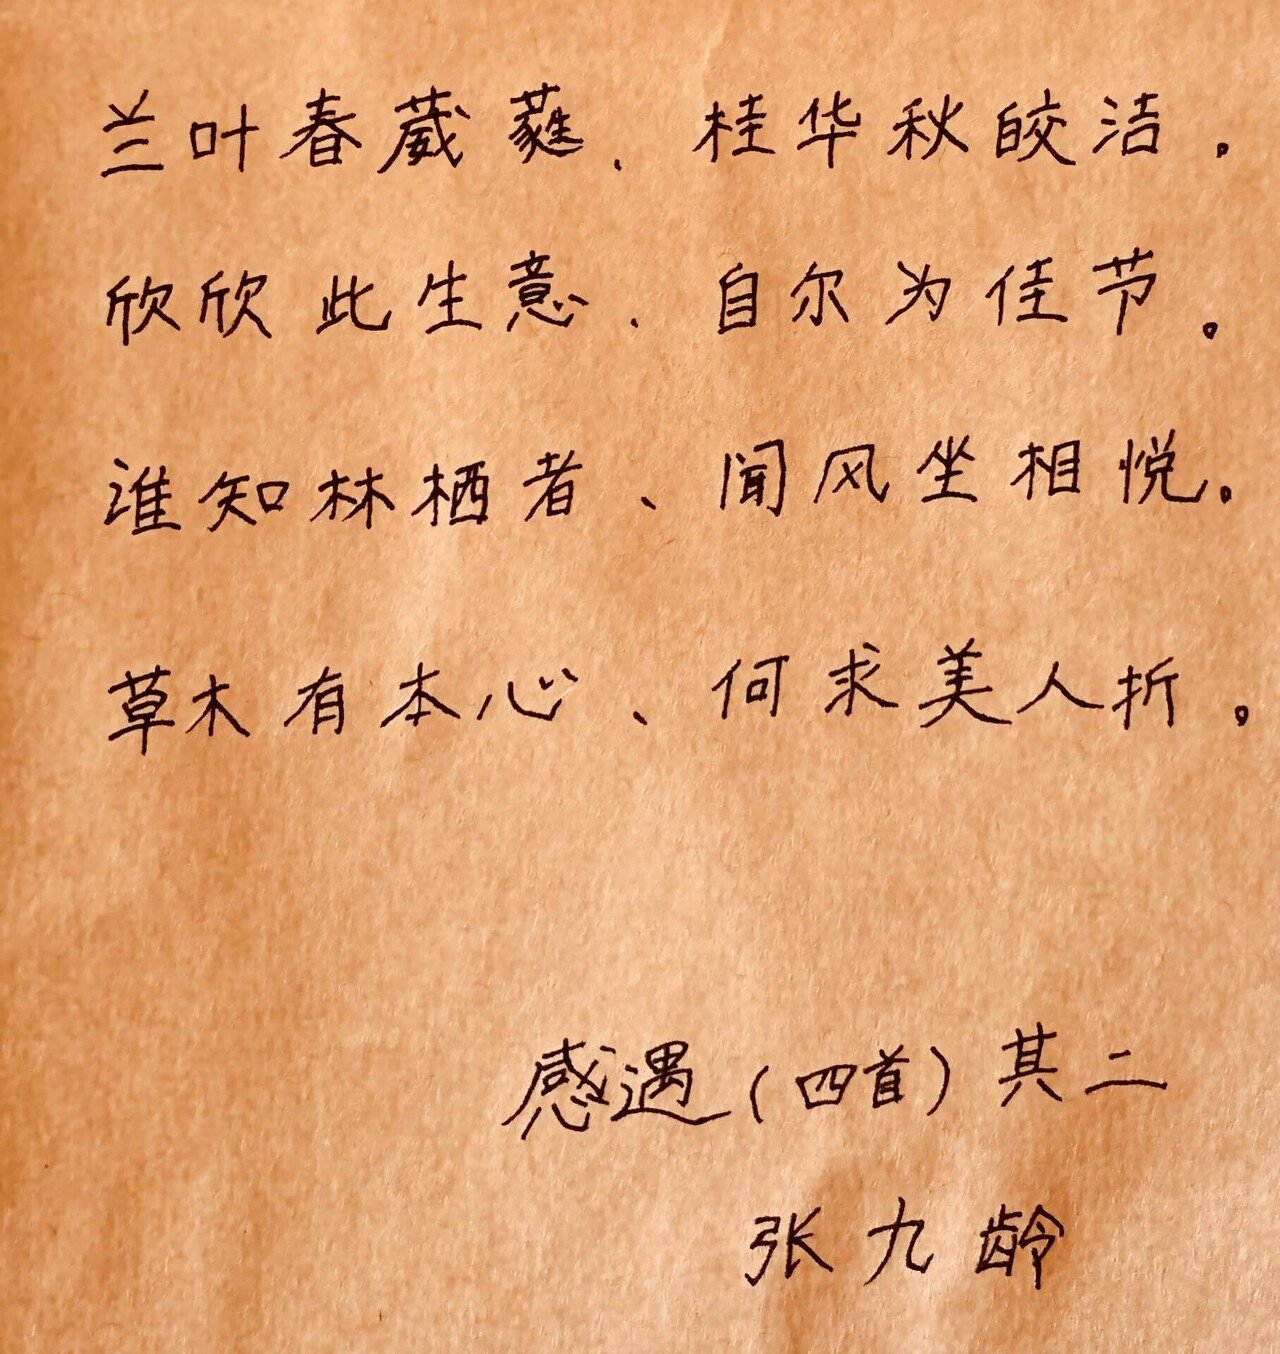 兰叶春葳蕤、桂华秋皎洁。
欣欣此生意、自尔为佳节。
谁知林栖者、闻风坐相悦。
草木有本心、何求美人折。
感遇（四首）其二
张九龄